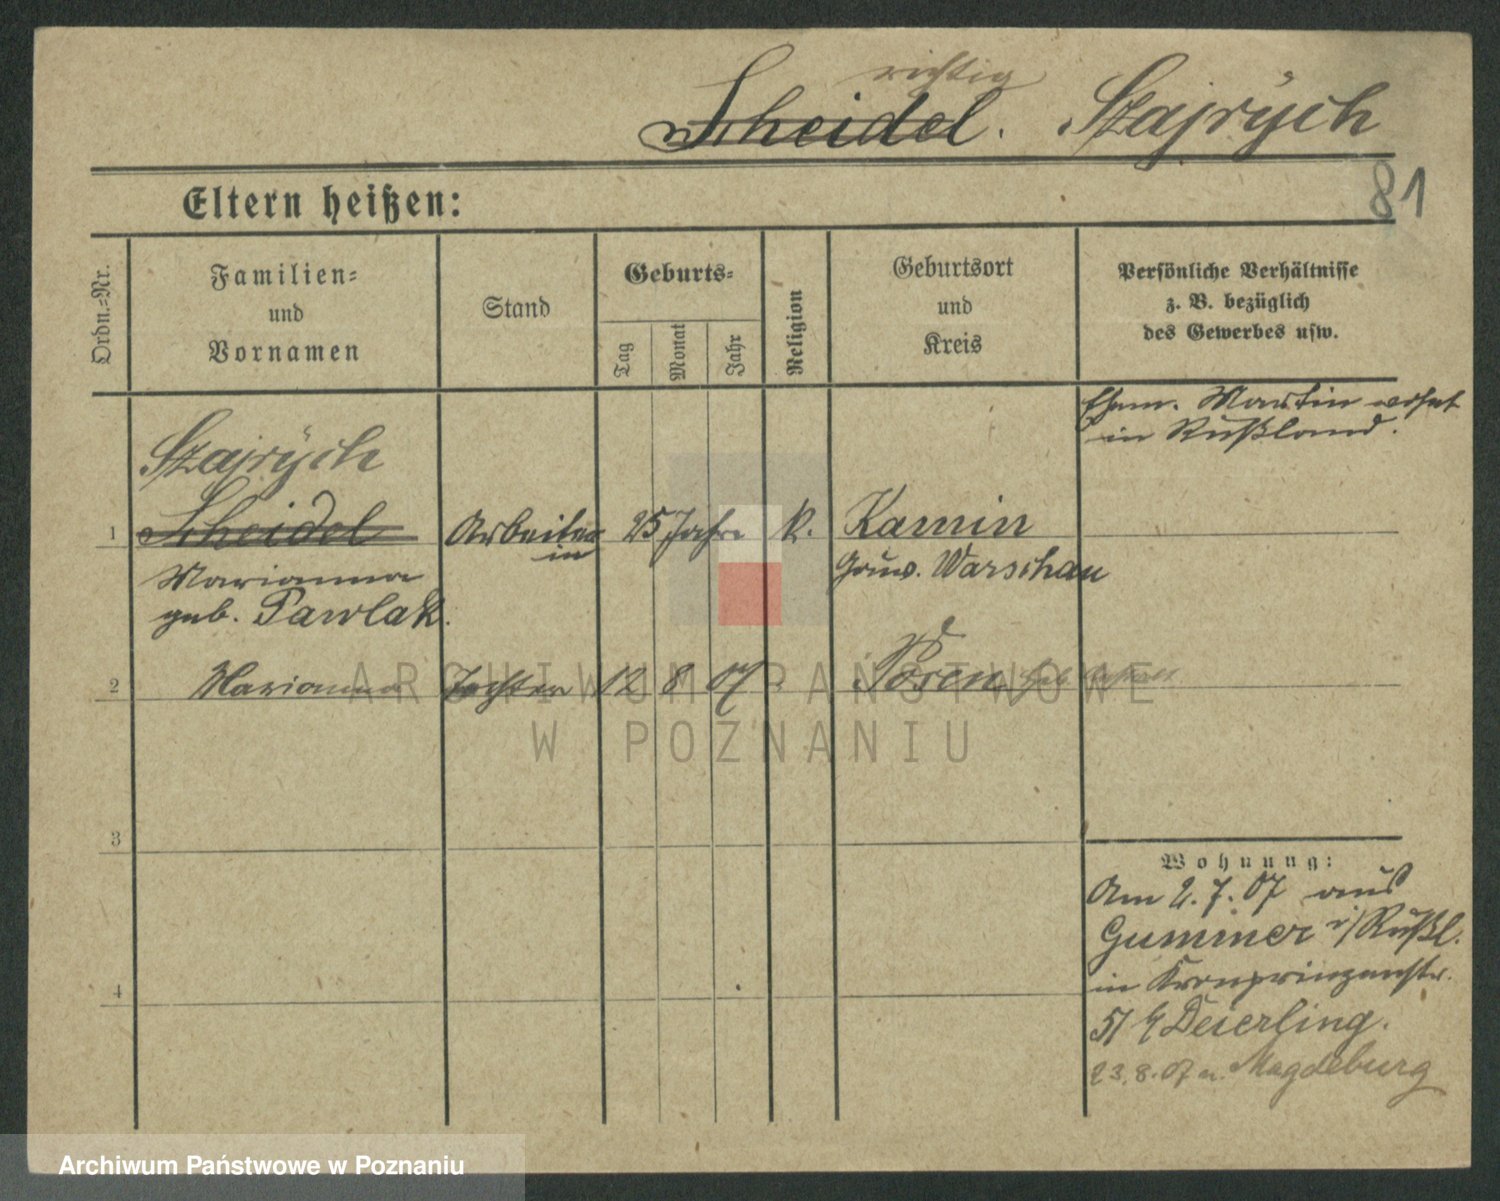 richtig
Scheidel. Szajrÿch
81
Eltern heißen:
Ordn.-Nr.
Familien-
und
Vornamen
Stand
Geburts-
Tag
Monat
Jahr
Religion
Geburtsort
und
Kreis
Persönliche Verhältnisse
z. B. bezüglich
des Gewerbes usw.
Ehem. Martin wohnt
in Rußland.
Szajrÿch
1 Scheidel Arbeiter 25 Jahre k. Kamin
in
Marianna Gouv. Warschau
geb. Pawlak.
2 Marianna Tochter 12 8 07 Posen
3
4
Wohnung:
Am 2.7.07 aus
Gummer i/Rußl.
in Kronprinzenstr.
51 b/ Deierling.
23.8.07 n. Magdeburg
ARCHIWUM PAŃSTWOWE
W POZNANIU
Archiwum Państwowe w Poznaniu